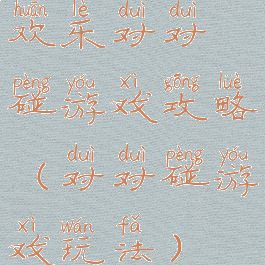 huān lè duì duì
欢乐对对
pèng yóu xì gōng lüè
碰游戏攻略
duì duì pèng yóu
（对对碰游
xì wán fǎ
戏玩法）